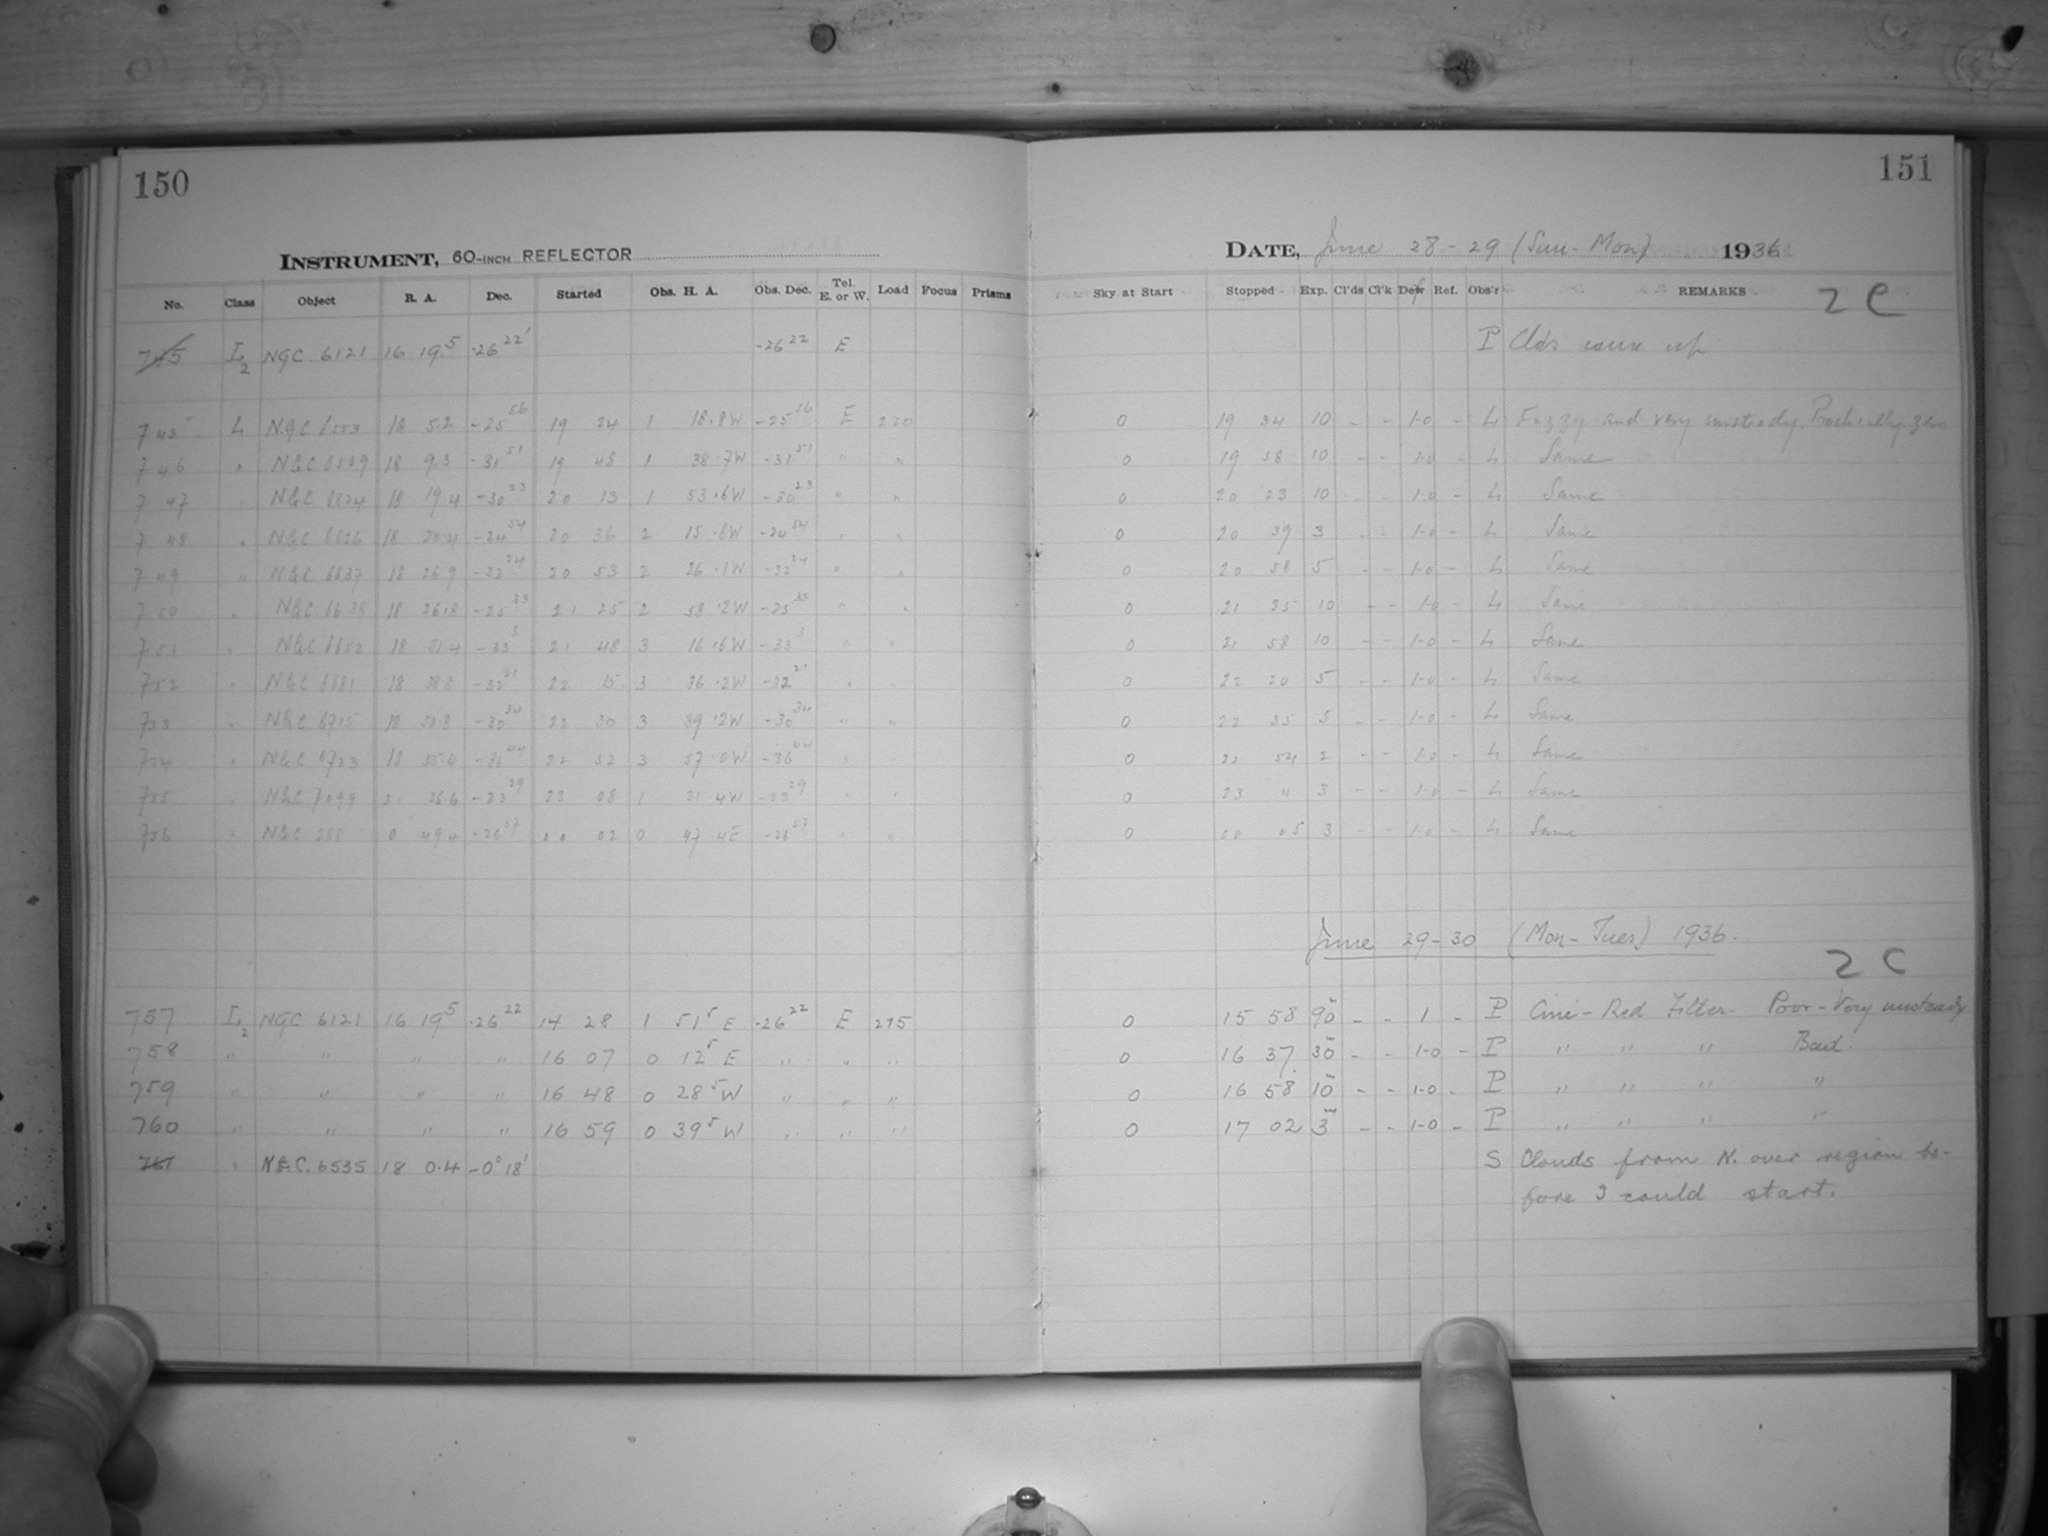 150
151
INSTRUMENT, 60-INCH REFLECTOR
DATE, June 28-29 (Sun-Mon) 1936
No. Class Object R. A. Dec. Started Obs. H. A. Obs. Dec. Tel. E. or W. Load Focus Prisms Sky at Start Stopped Exp. Cl'ds Cl'k Dew Ref. Obs'r REMARKS
2 C
745 I2 NGC 6121 16 19.5 -26 22' -26 22 E P Clds came up
745 L NGC 6553 18 5.2 -25 56 19 24 1 18.8W -25 56 E 220 0 19 34 10 - - 1-0 - L Fuzzy and very unsteady. Practically zero
746 " NGC 6569 18 9.3 -31 51 19 48 1 38.7W -31 51 " " 0 19 58 10 - - 1-0 - L Same
747 " NGC 6624 18 19.4 -30 23 20 13 1 53.6W -30 23 " " 0 20 23 10 - - 1-0 - L Same
748 " NGC 6626 18 20.4 -24 54 20 36 2 15.6W -24 54 " " 0 20 39 3 - - 1-0 - L Same
749 " NGC 6637 18 26.9 -32 24 20 53 2 26.1W -32 24 " " 0 20 58 5 - - 1-0 - L Same
750 " NGC 6638 18 26.8 -25 33 21 25 2 58.2W -25 33 " " 0 21 35 10 - - 1-0 - L Same
751 " NGC 6652 18 31.4 -33 3 21 48 3 16.6W -33 3 " " 0 21 58 10 - - 1-0 - L Same
752 " NGC 6681 18 38.8 -32 21 22 15 3 36.2W -32 21 " " 0 22 20 5 - - 1-0 - L Same
753 " NGC 6715 18 50.8 -30 34 22 30 3 39.2W -30 34 " " 0 22 35 5 - - 1-0 - L Same
754 " NGC 6723 18 55.0 -36 44 22 52 3 57.0W -36 44 " " 0 22 54 2 - - 1-0 - L Same
755 " NGC 7099 21 36.6 -23 29 23 08 1 31.4W -23 29 " " 0 23 " 3 - - 1-0 - L Same
756 " NGC 288 0 49.4 -26 57 00 02 0 47.4E -26 57 " " 0 00 05 3 - - 1-0 - L Same
June 29-30 (Mon-Tues) 1936.
2 C
757 I2 NGC 6121 16 19 5 -26 22 14 28 1 51 5 E -26 22 E 215 0 15 58 90 - - 1 - P Ciné-Red Filter. Poor-Very unsteady
758 " " " " 16 07 0 12 5 E " " " 0 16 37 30 - - 1-0 - P " " " Bad.
759 " " " " 16 48 0 28 5 W " " " 0 16 58 10 - - 1-0 - P " " " "
760 " " " " 16 59 0 39 5 W " " " 0 17 02 3 - - 1-0 - P " " " "
761 " N.G.C. 6535 18 0.4 -0° 18' S Clouds from N. over region be-
fore I could start.